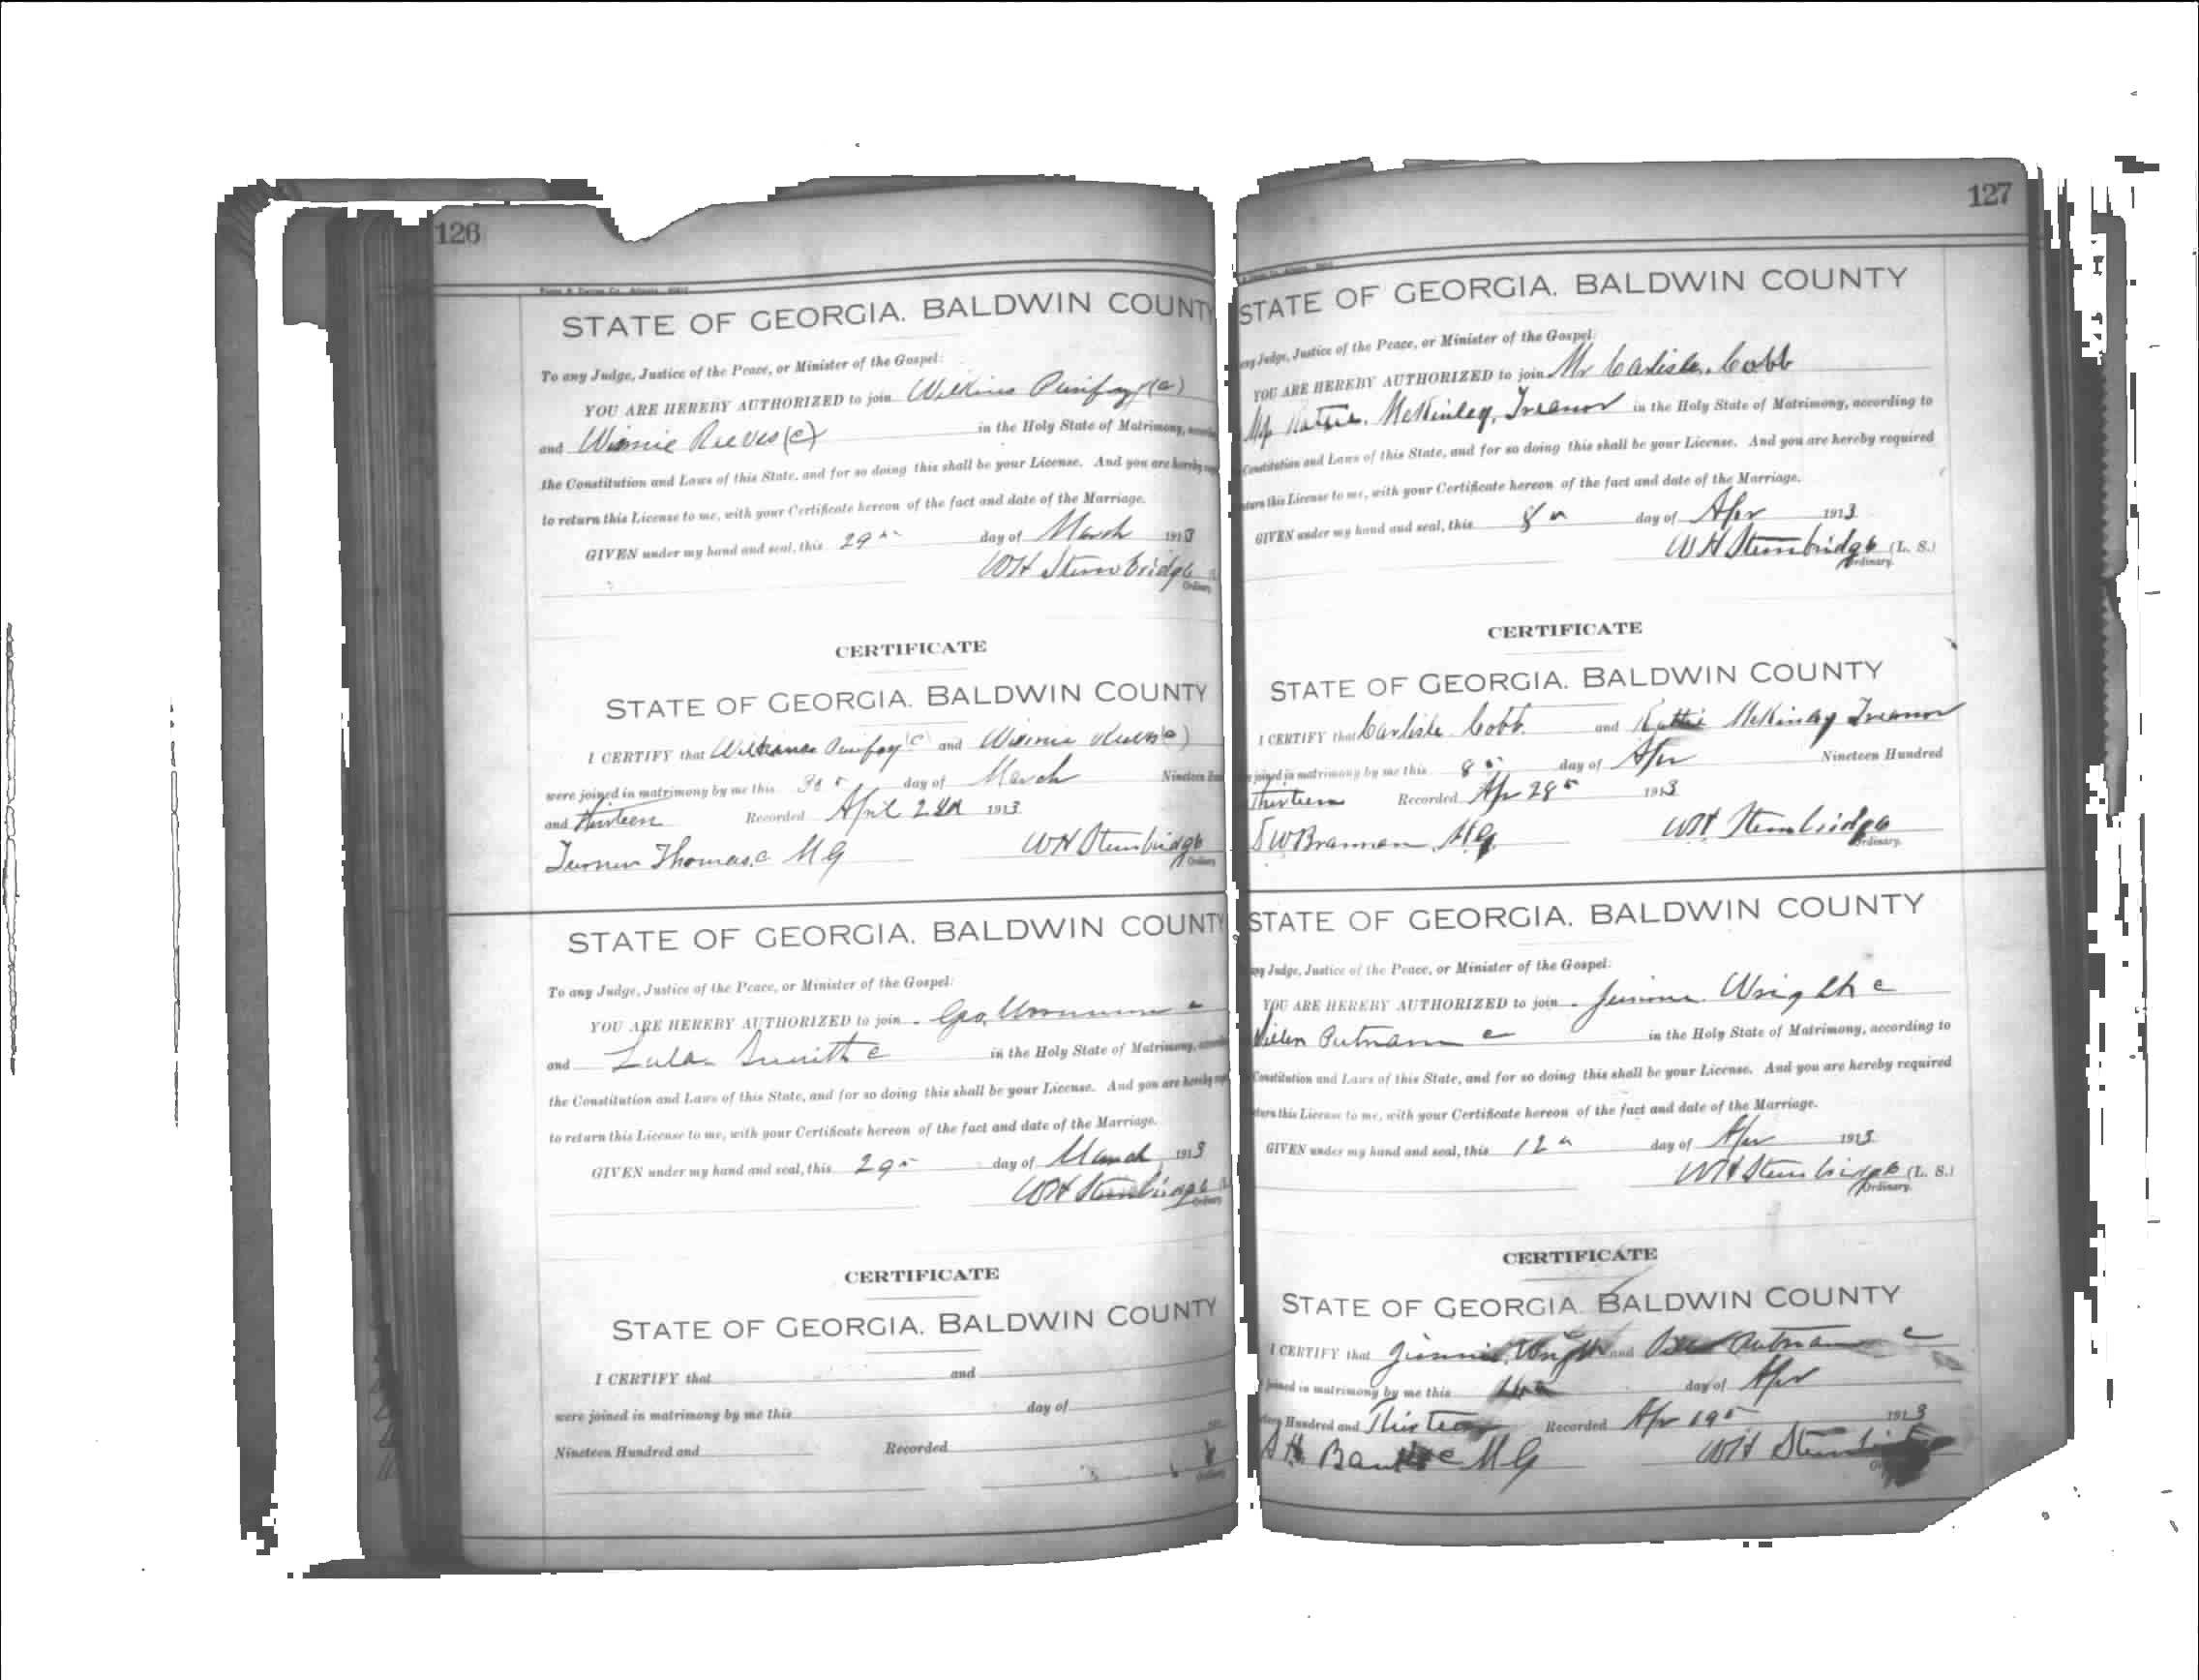 126
STATE OF GEORGIA. BALDWIN COUNTY
To any Judge, Justice of the Peace, or Minister of the Gospel:
YOU ARE HEREBY AUTHORIZED to join Wilkins Purifoy (c)
and Winnie Reeves (c) in the Holy State of Matrimony,
the Constitution and Laws of this State, and for so doing this shall be your License. And you are hereby
to return this License to me, with your Certificate hereon of the fact and date of the Marriage.
GIVEN under my hand and seal, this 29 day of March 1913
WH Stembridge
Ordinary
CERTIFICATE
STATE OF GEORGIA. BALDWIN COUNTY
I CERTIFY that Purifoy (c) and Winnie
were joined in matrimony by me this day of March Nineteen
and thirteen Recorded April 1913
Turner Thomas, c MG WH Stembridge
Ordinary
STATE OF GEORGIA. BALDWIN COUNTY
To any Judge, Justice of the Peace, or Minister of the Gospel:
YOU ARE HEREBY AUTHORIZED to join Geo. c
and Lula Smith c in the Holy State of Matrimony,
the Constitution and Laws of this State, and for so doing this shall be your License. And you are hereby
to return this License to me, with your Certificate hereon of the fact and date of the Marriage.
GIVEN under my hand and seal, this 29 day of March 1913
WH Stembridge
Ordinary
CERTIFICATE
STATE OF GEORGIA. BALDWIN COUNTY
I CERTIFY that and
were joined in matrimony by me this day of
Nineteen Hundred and Recorded
Ordinary
127
STATE OF GEORGIA. BALDWIN COUNTY
any Judge, Justice of the Peace, or Minister of the Gospel:
YOU ARE HEREBY AUTHORIZED to join Mr Carlisle Cobb
McKinley, Treanor in the Holy State of Matrimony, according to
Constitution and Laws of this State, and for so doing this shall be your License. And you are hereby required
return this License to me, with your Certificate hereon of the fact and date of the Marriage.
GIVEN under my hand and seal, this 8 day of Apr 1913
WH Stembridge (L. S.)
Ordinary.
CERTIFICATE
STATE OF GEORGIA. BALDWIN COUNTY
I CERTIFY that Carlisle Cobb. and Kattie McKinley Treanor
joined in matrimony by me this 8 day of Apr Nineteen Hundred
Thirteen Recorded Apr 28 1913
SW Brannen, MG. WH Stembridge
Ordinary.
STATE OF GEORGIA. BALDWIN COUNTY
any Judge, Justice of the Peace, or Minister of the Gospel:
YOU ARE HEREBY AUTHORIZED to join Wright c
Putnam c in the Holy State of Matrimony, according to
Constitution and Laws of this State, and for so doing this shall be your License. And you are hereby required
return this License to me, with your Certificate hereon of the fact and date of the Marriage.
GIVEN under my hand and seal, this 12 day of Apr 1913
WH Stembridge (L. S.)
Ordinary.
CERTIFICATE
STATE OF GEORGIA. BALDWIN COUNTY
I CERTIFY that Jimmie Wright and Putnam c
joined in matrimony by me this day of Apr
Hundred and Thirteen Recorded Apr 19 1913
MG WH